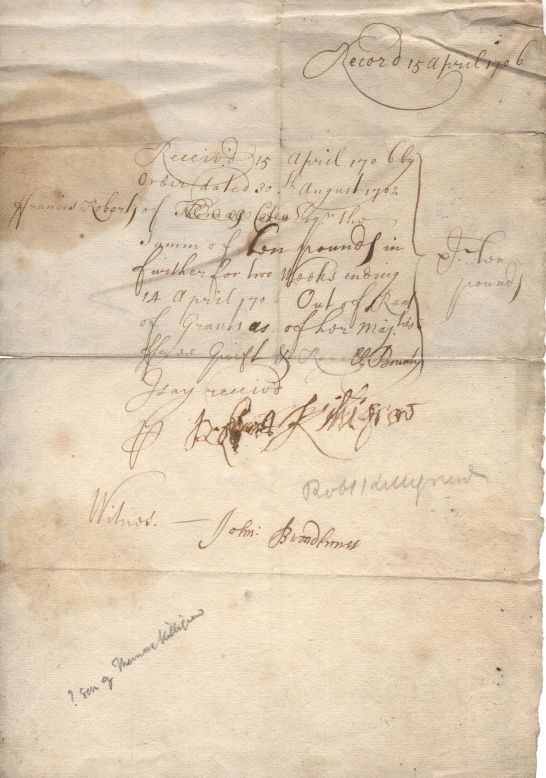 Record 15 April 1706
Receiv'd 15 April 1706 by
Order dated 30th August 1702
ffrancis Roberts of Esqr the
Summ of ten pounds in
further for two Weeks ending
14 April 1706 Out of Rent
of Grants as of her Majties
ffree Guift & Bounty
I say receivd
£ ten
pounds
Robert Killigrew
Robt Killigrew
Witnes. — John: Broadhurst
? son of Thomas Killigrew